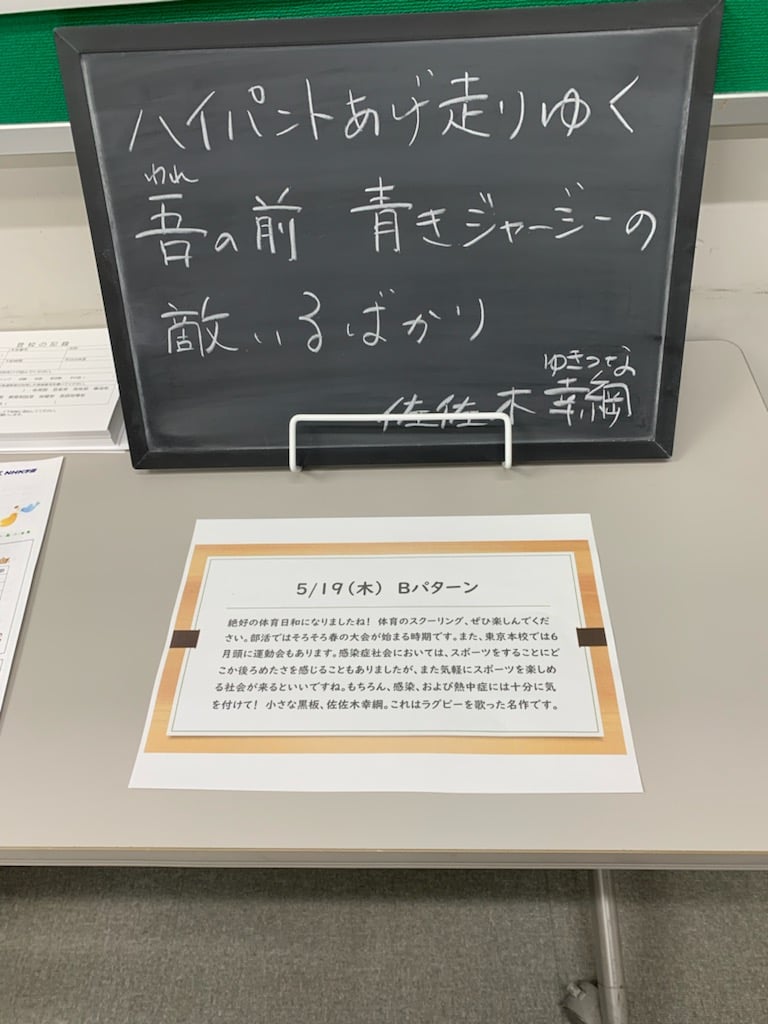 ハイパントあげ走りゆく
われ
吾の前 青きジャージーの
敵いるばかり
ゆきつな
佐佐木 幸綱
登校の記録
NHK学園
5/19(木) Bパターン
絶好の体育日和になりましたね! 体育のスクーリング、ぜひ楽しんでくだ
さい。部活ではそろそろ春の大会が始まる時期です。また、東京本校では6
月頭に運動会もあります。感染症社会においては、スポーツをすることにど
こか後ろめたさを感じることもありましたが、また気軽にスポーツを楽しめ
る社会が来るといいですね。もちろん、感染、および熱中症には十分に気
を付けて! 小さな黒板、佐佐木幸綱。これはラグビーを歌った名作です。